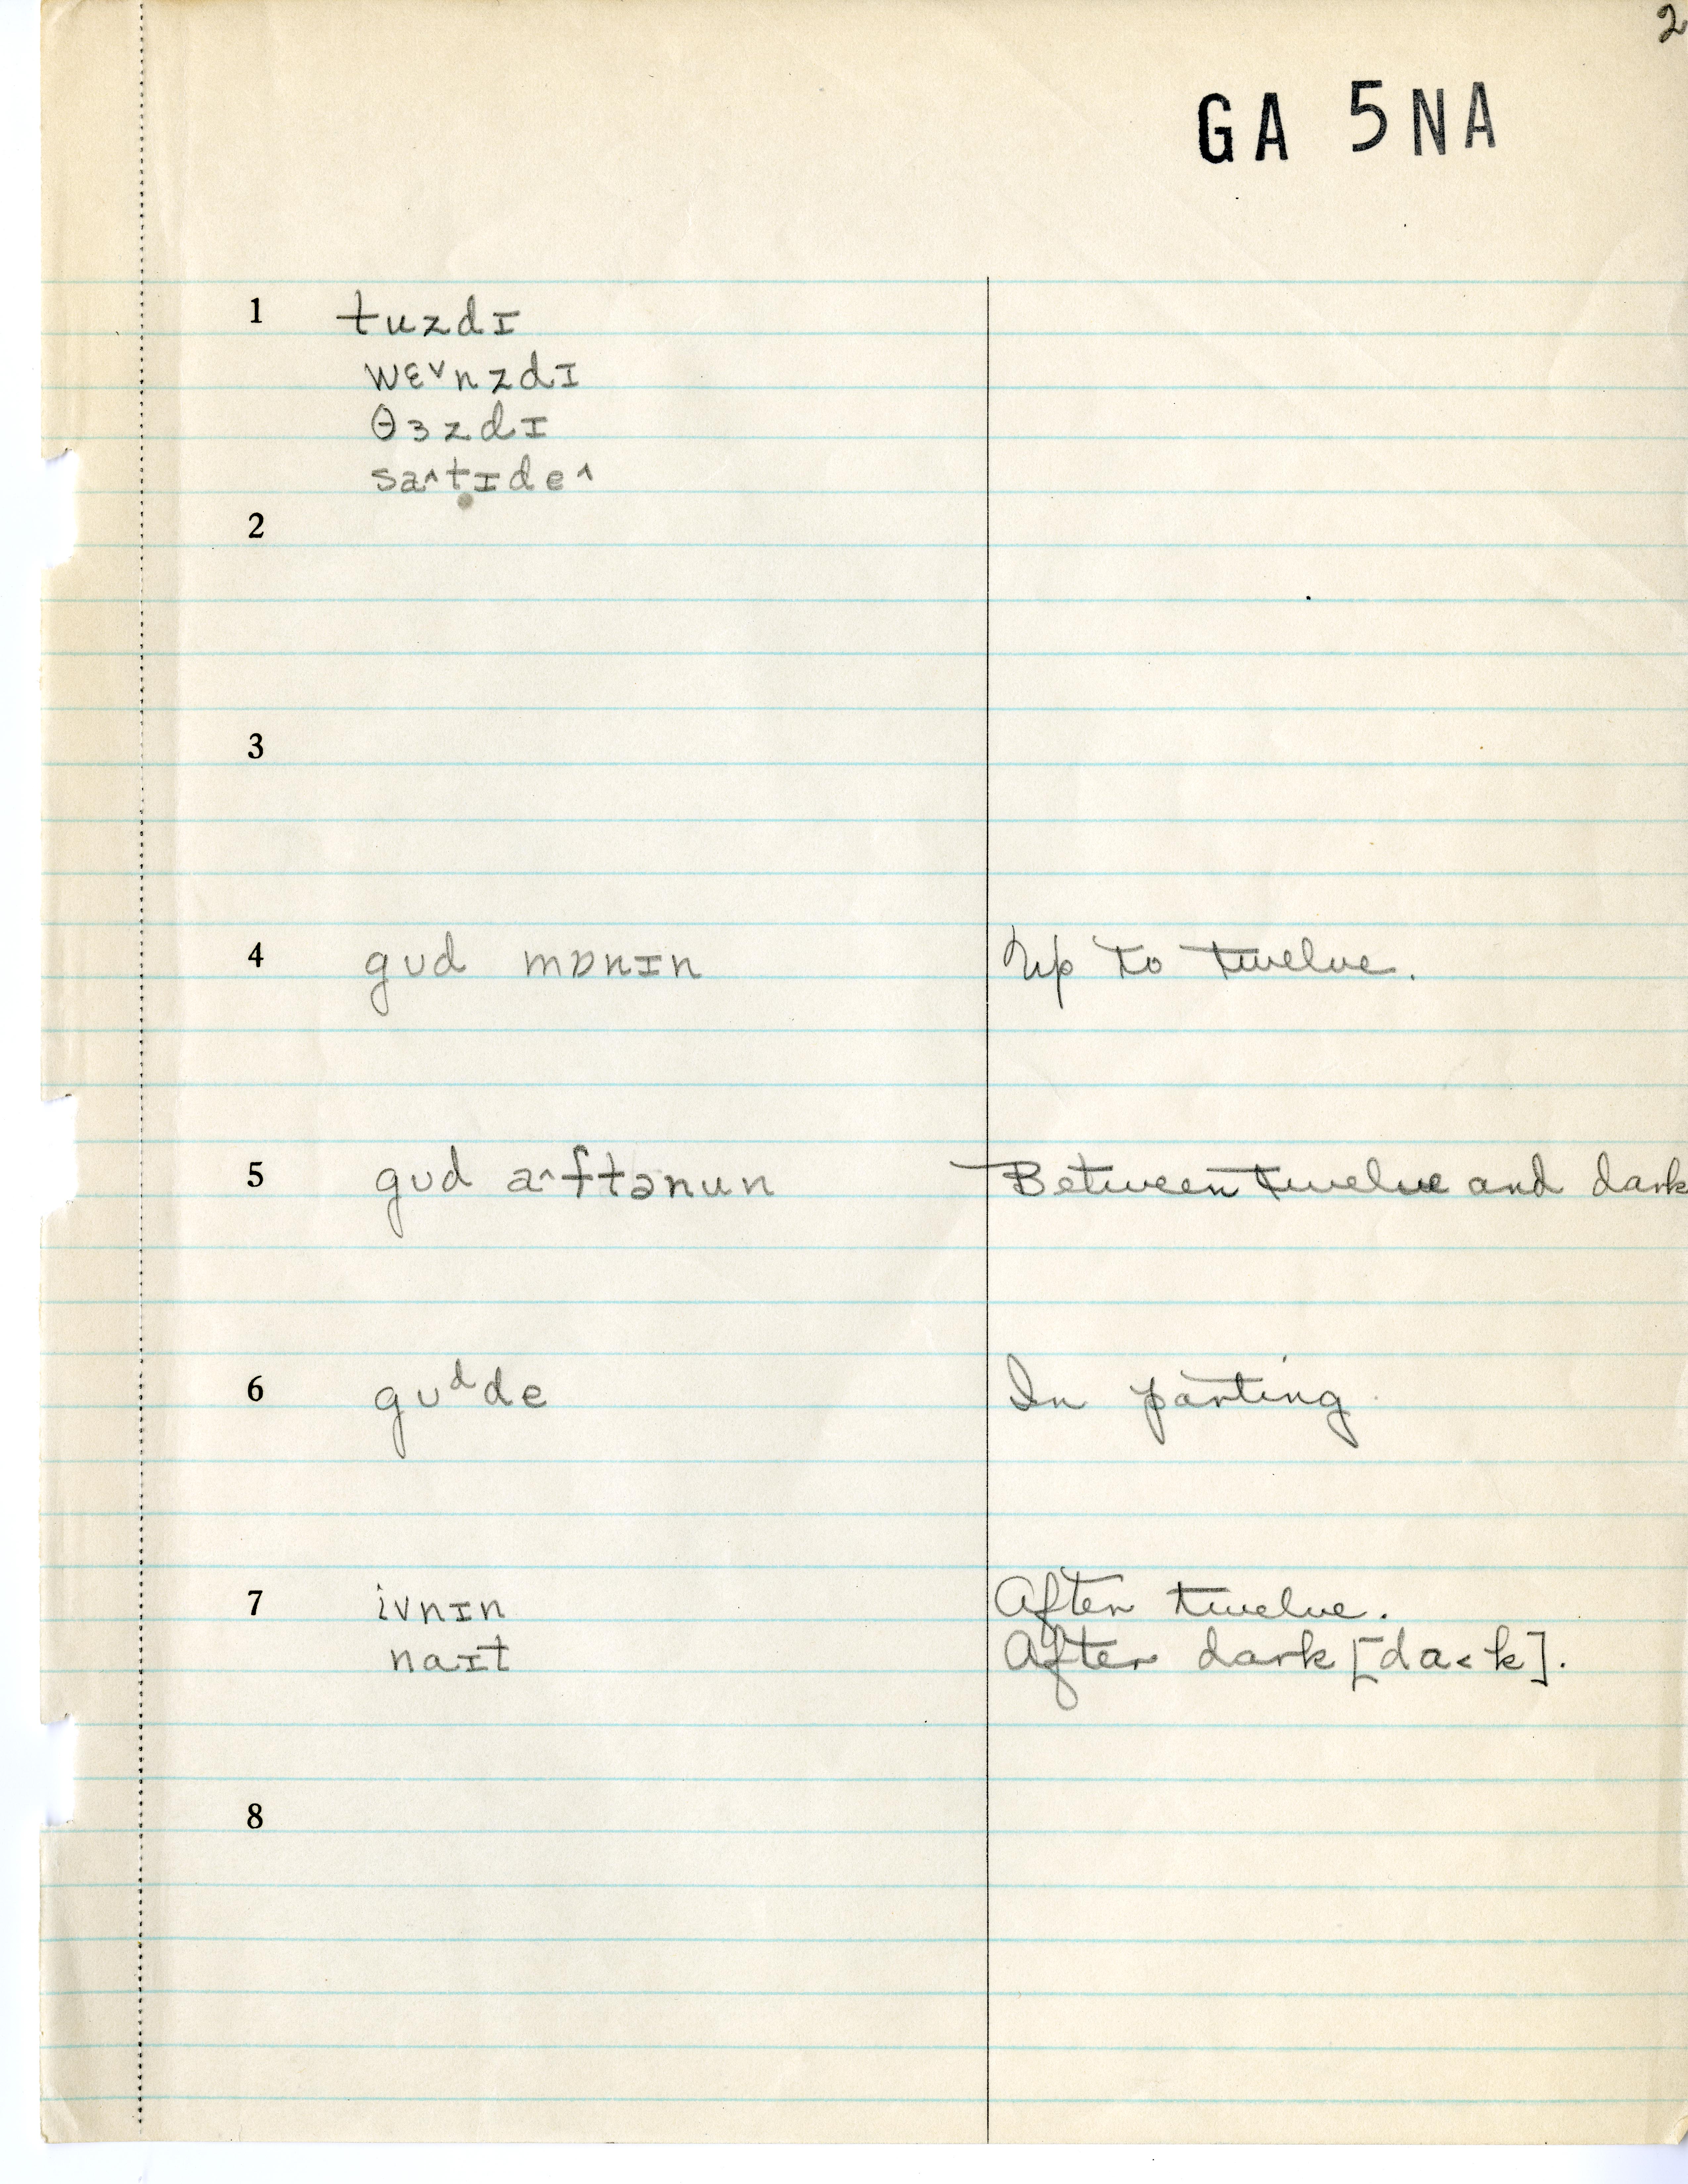 2
GA 5NA
1 tuzdɪ
wɛ˅nzdɪ
θɜzdɪ
sa˄tɪde˄
2
3
4 gʊd mɒnɪn Up to twelve.
5 gʊd a˄ftənun Between twelve and dark
6 gʊᵈde In parting.
7 ivnɪn After twelve.
naɪt After dark [da˂k].
8